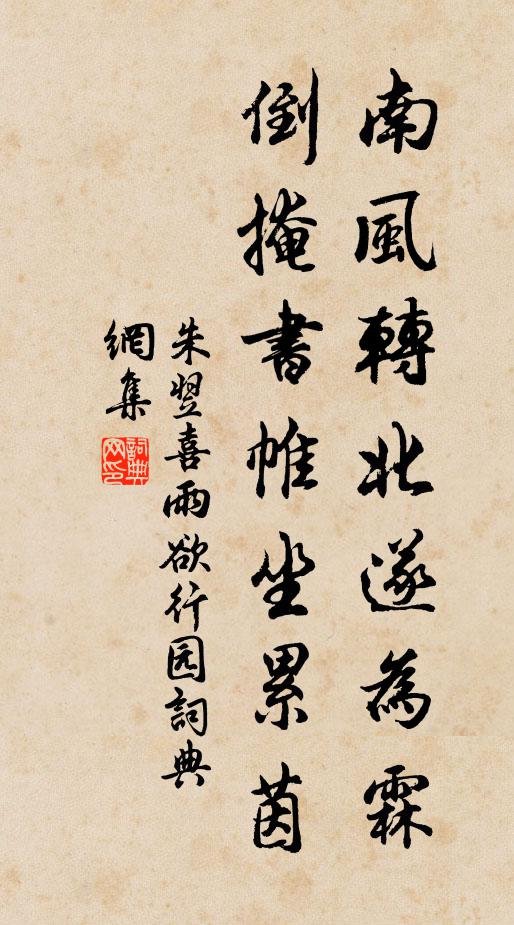 南風轉北遂為霖
倒掩書帷坐累茵
朱翌喜雨欲行园詞典
網集
詞典網印